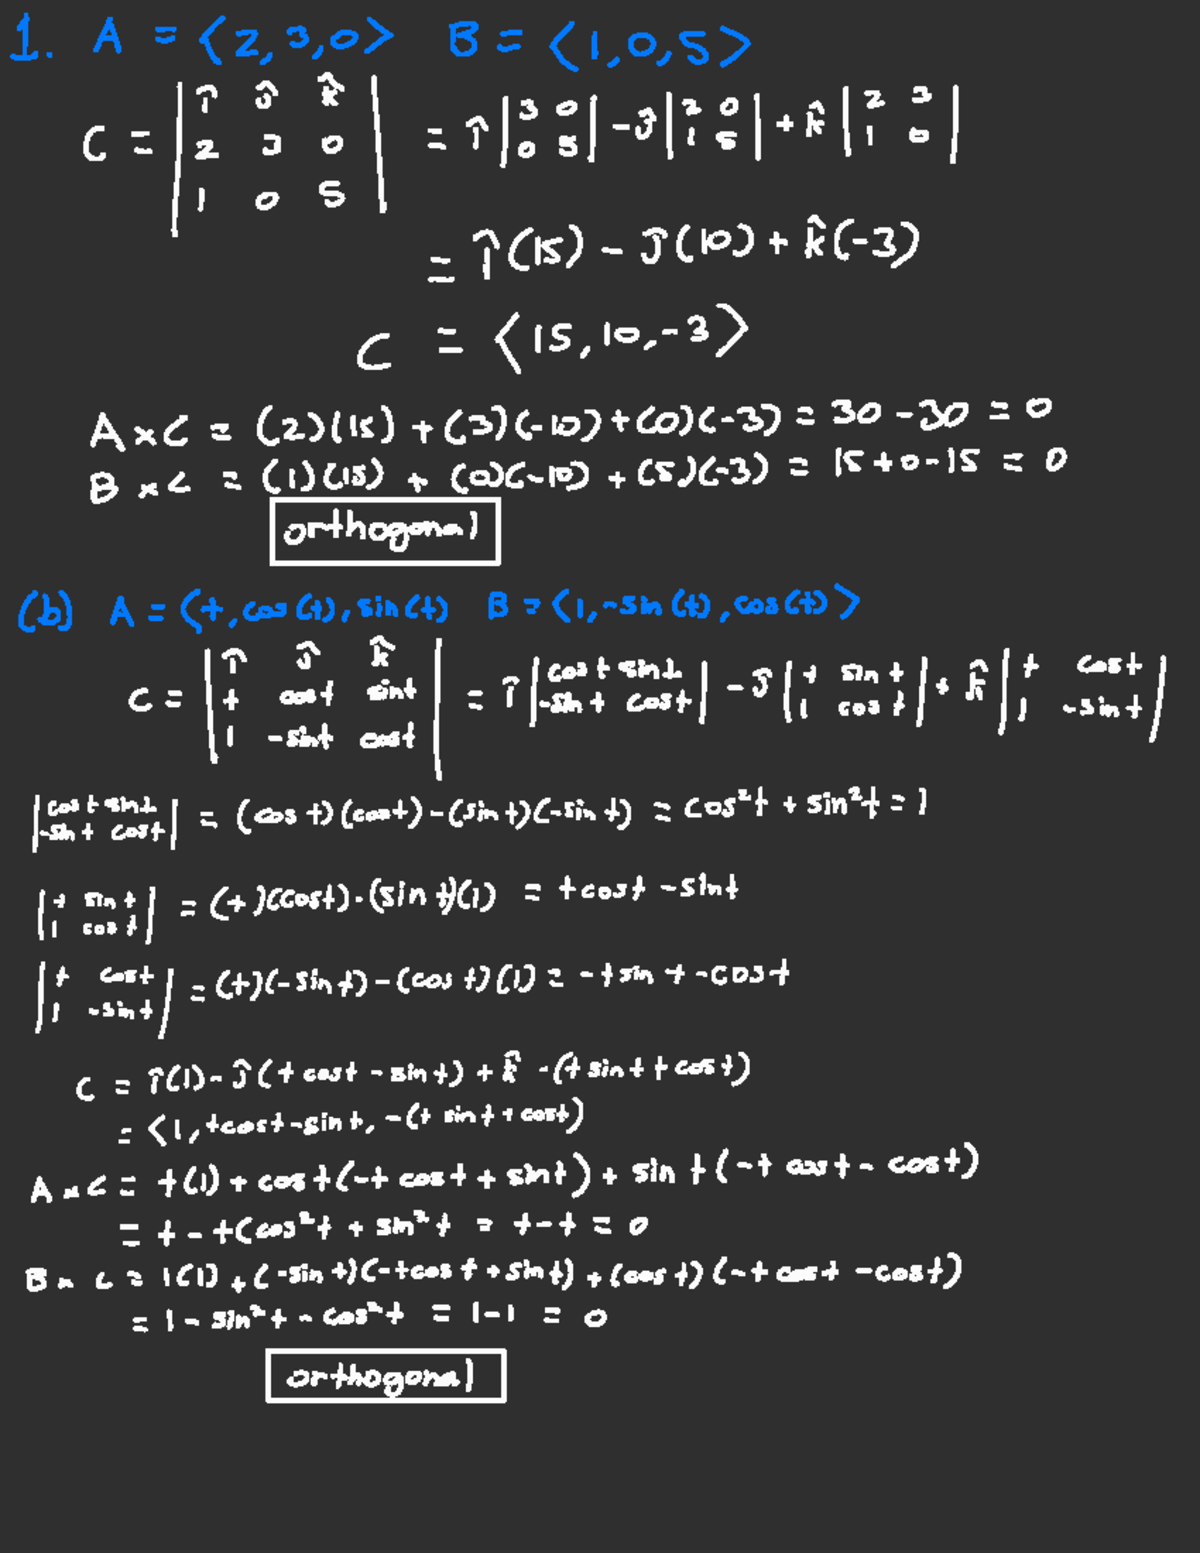 1. A = ⟨2,3,0⟩ B = ⟨1,0,5⟩
C = |î ĵ k̂; 2 3 0; 1 0 5| = î|3 0; 0 5| - ĵ|2 0; 1 5| + k̂|2 3; 1 0|
= î(15) - ĵ(10) + k̂(-3)
C = ⟨15,10,-3⟩
A×C = (2)(15) + (3)(-10) + (0)(-3) = 30 - 30 = 0
B×C = (1)(15) + (0)(-10) + (5)(-3) = 15 + 0 - 15 = 0
orthogonal
(b) A = ⟨t, cos(t), sin(t) B = ⟨1, -sin(t), cos(t)⟩
C = |î ĵ k̂; t cost sint; 1 -sint cost| = î|cost sint; -sint cost| - ĵ|t sint; 1 cost| + k̂|t cost; 1 -sint|
|cost sint; -sint cost| = (cos t)(cost) - (sin t)(-sin t) = cos²t + sin²t = 1
|t sint; 1 cost| = (t)(cost) - (sin t)(1) = tcost - sint
|t cost; 1 -sint| = (t)(-sint) - (cos t)(1) = -tsin t - cost
C = î(1) - ĵ(t cost - sin t) + k̂ -(t sint + cost)
= ⟨1, tcost - sint, -(t sint + cost)
A×C = t(1) + cost(-t cost + sint) + sin t(-t cost - cost)
= t - t(cos²t + sin²t = t - t = 0
B×C = 1(1) + (-sin t)(-tcos t + sint) + (cos t)(-t cost - cost)
= 1 - sin²t - cos²t = 1 - 1 = 0
orthogonal